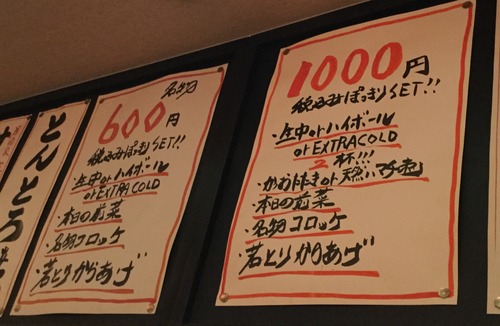 とんとろ
名物
600円
税込みぽっきりSET!!
・生中orハイボール
orEXTRA COLD
・本日の前菜
・名物コロッケ
・若とりからあげ
1000円
税込みぽっきりSET!!
・生中orハイボール
orEXTRA COLD
2杯!!!
・かおたたきor天然ハマチ
・本日の前菜
・名物コロッケ
・若とりからあげ